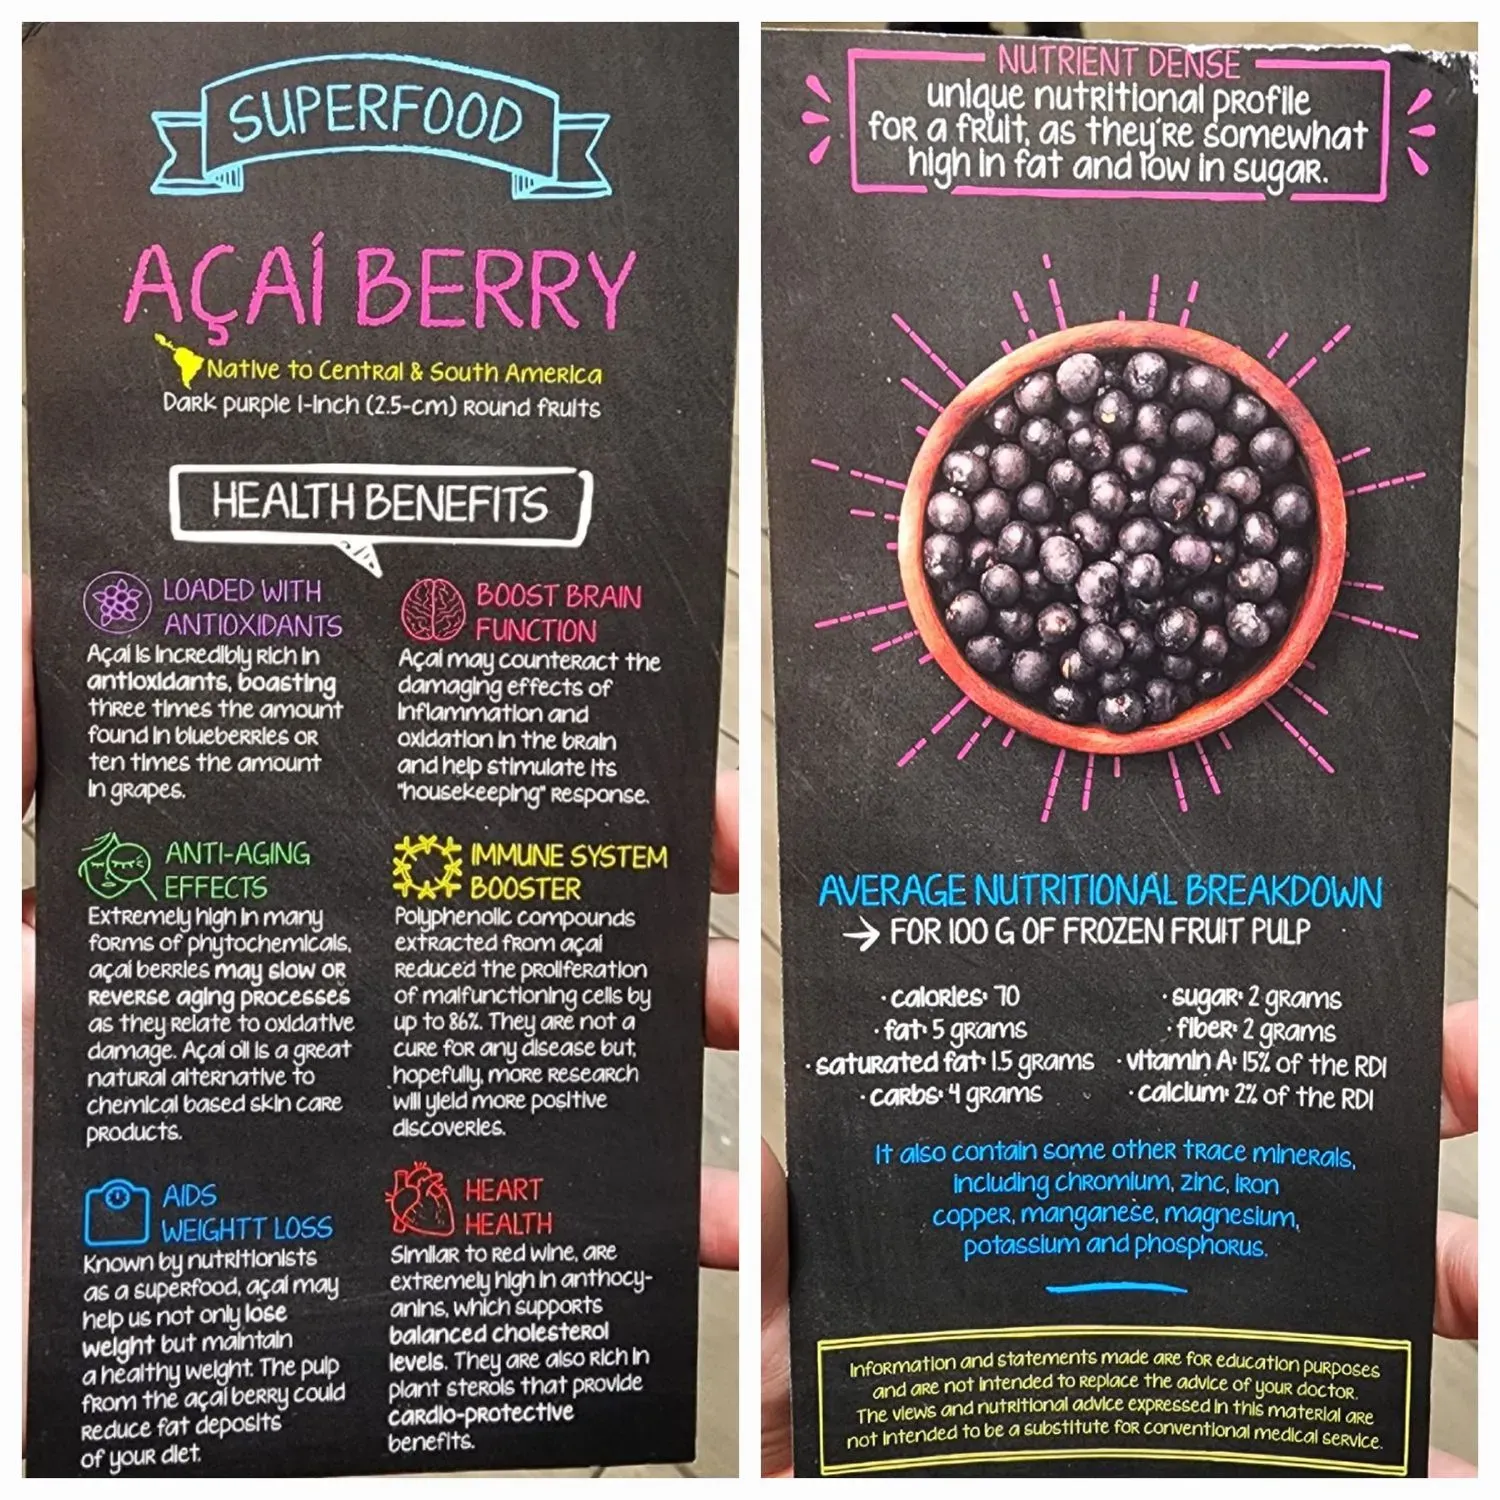 SUPERFOOD
AÇAÍ BERRY
Native to Central & South America
Dark purple 1-inch (2.5-cm) round fruits
HEALTH BENEFITS
LOADED WITH
ANTIOXIDANTS
Açaí is incredibly rich in
antioxidants, boasting
three times the amount
found in blueberries or
ten times the amount
in grapes.
BOOST BRAIN
FUNCTION
Açaí may counteract the
damaging effects of
inflammation and
oxidation in the brain
and help stimulate its
"housekeeping" response.
ANTI-AGING
EFFECTS
Extremely high in many
forms of phytochemicals,
açaí berries may slow or
reverse aging processes
as they relate to oxidative
damage. Açaí oil is a great
natural alternative to
chemical based skin care
products.
IMMUNE SYSTEM
BOOSTER
Polyphenolic compounds
extracted from açaí
reduced the proliferation
of malfunctioning cells by
up to 86%. They are not a
cure for any disease but,
hopefully, more research
will yield more positive
discoveries.
AIDS
WEIGHTT LOSS
Known by nutritionists
as a superfood, açaí may
help us not only lose
weight but maintain
a healthy weight. The pulp
from the açaí berry could
reduce fat deposits
of your diet.
HEART
HEALTH
Similar to red wine, are
extremely high in anthocy-
anins, which supports
balanced cholesterol
levels. They are also rich in
plant sterols that provide
cardio-protective
benefits.
NUTRIENT DENSE
unique nutritional profile
for a fruit, as they're somewhat
high in fat and low in sugar.
AVERAGE NUTRITIONAL BREAKDOWN
→ FOR 100 G OF FROZEN FRUIT PULP
· calories: 70
· fat: 5 grams
· saturated fat: 1.5 grams
· carbs: 4 grams
· sugar: 2 grams
· fiber: 2 grams
· vitamin A: 15% of the RDI
· calcium: 2% of the RDI
It also contain some other trace minerals,
including chromium, zinc, iron
copper, manganese, magnesium,
potassium and phosphorus.
Information and statements made are for education purposes
and are not intended to replace the advice of your doctor.
The views and nutritional advice expressed in this material are
not intended to be a substitute for conventional medical service.